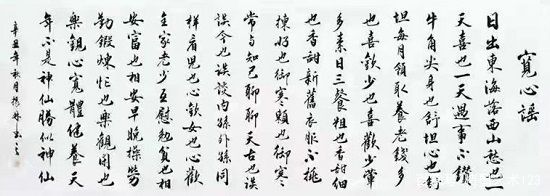 寬心謠
日出東海落西山愁也一
天喜也一天遇事不鑽
牛角尖身也舒坦心也舒
坦每月領取養老錢多
也喜歡少也喜歡少葷
多素日三餐粗也香甜細
也香甜新舊衣服不挑
揀好也御寒賴也御寒
常與知己聊聊天古也談
談今也談談內孫外孫同
樣看兒也心歡女也心歡
全家老少互慰勉貧也相
安富也相安早晚操勞
勤鍛煉忙也樂觀閑也
樂觀心寬體健養天
年不是神仙勝似神仙
辛丑年秋月楊林書之